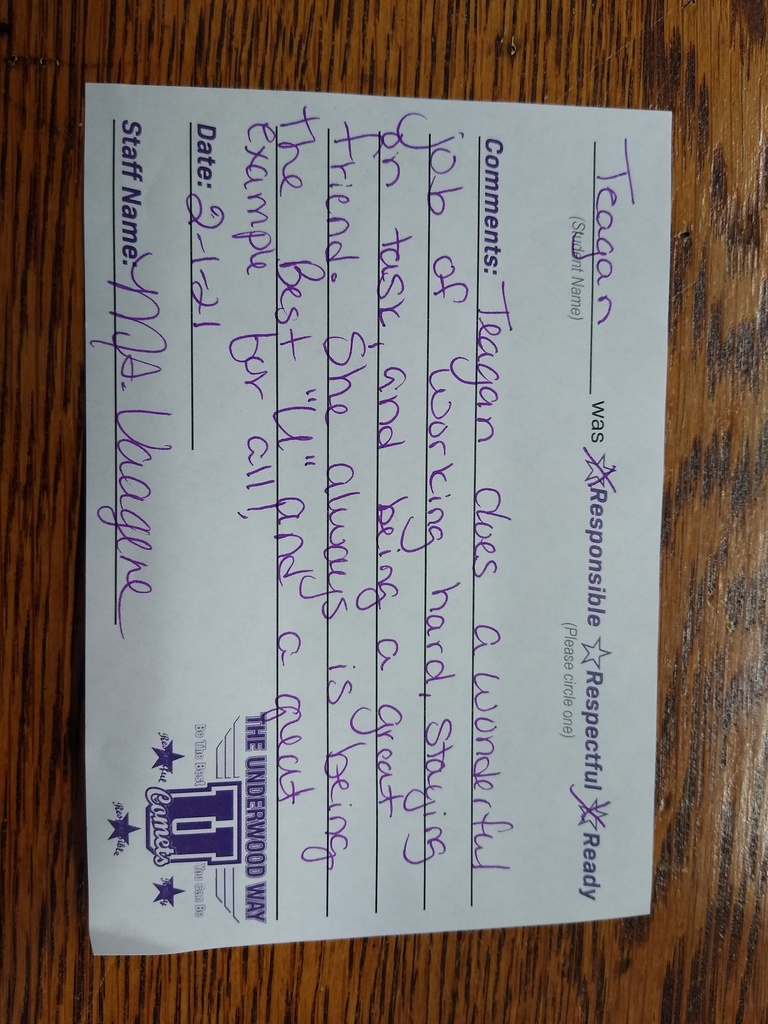 Teagan was ☆Responsible ☆Respectful ☆Ready
(Student Name) (Please circle one)
Comments: Teagan does a wonderful
job of working hard, staying
on task, and being a great
friend. She always is being
the Best "U" and a great
example for all!
Date: 2-1-21
Staff Name: Ms. Vaagene
THE UNDERWOOD WAY
Be The Best U You can Be
Comets